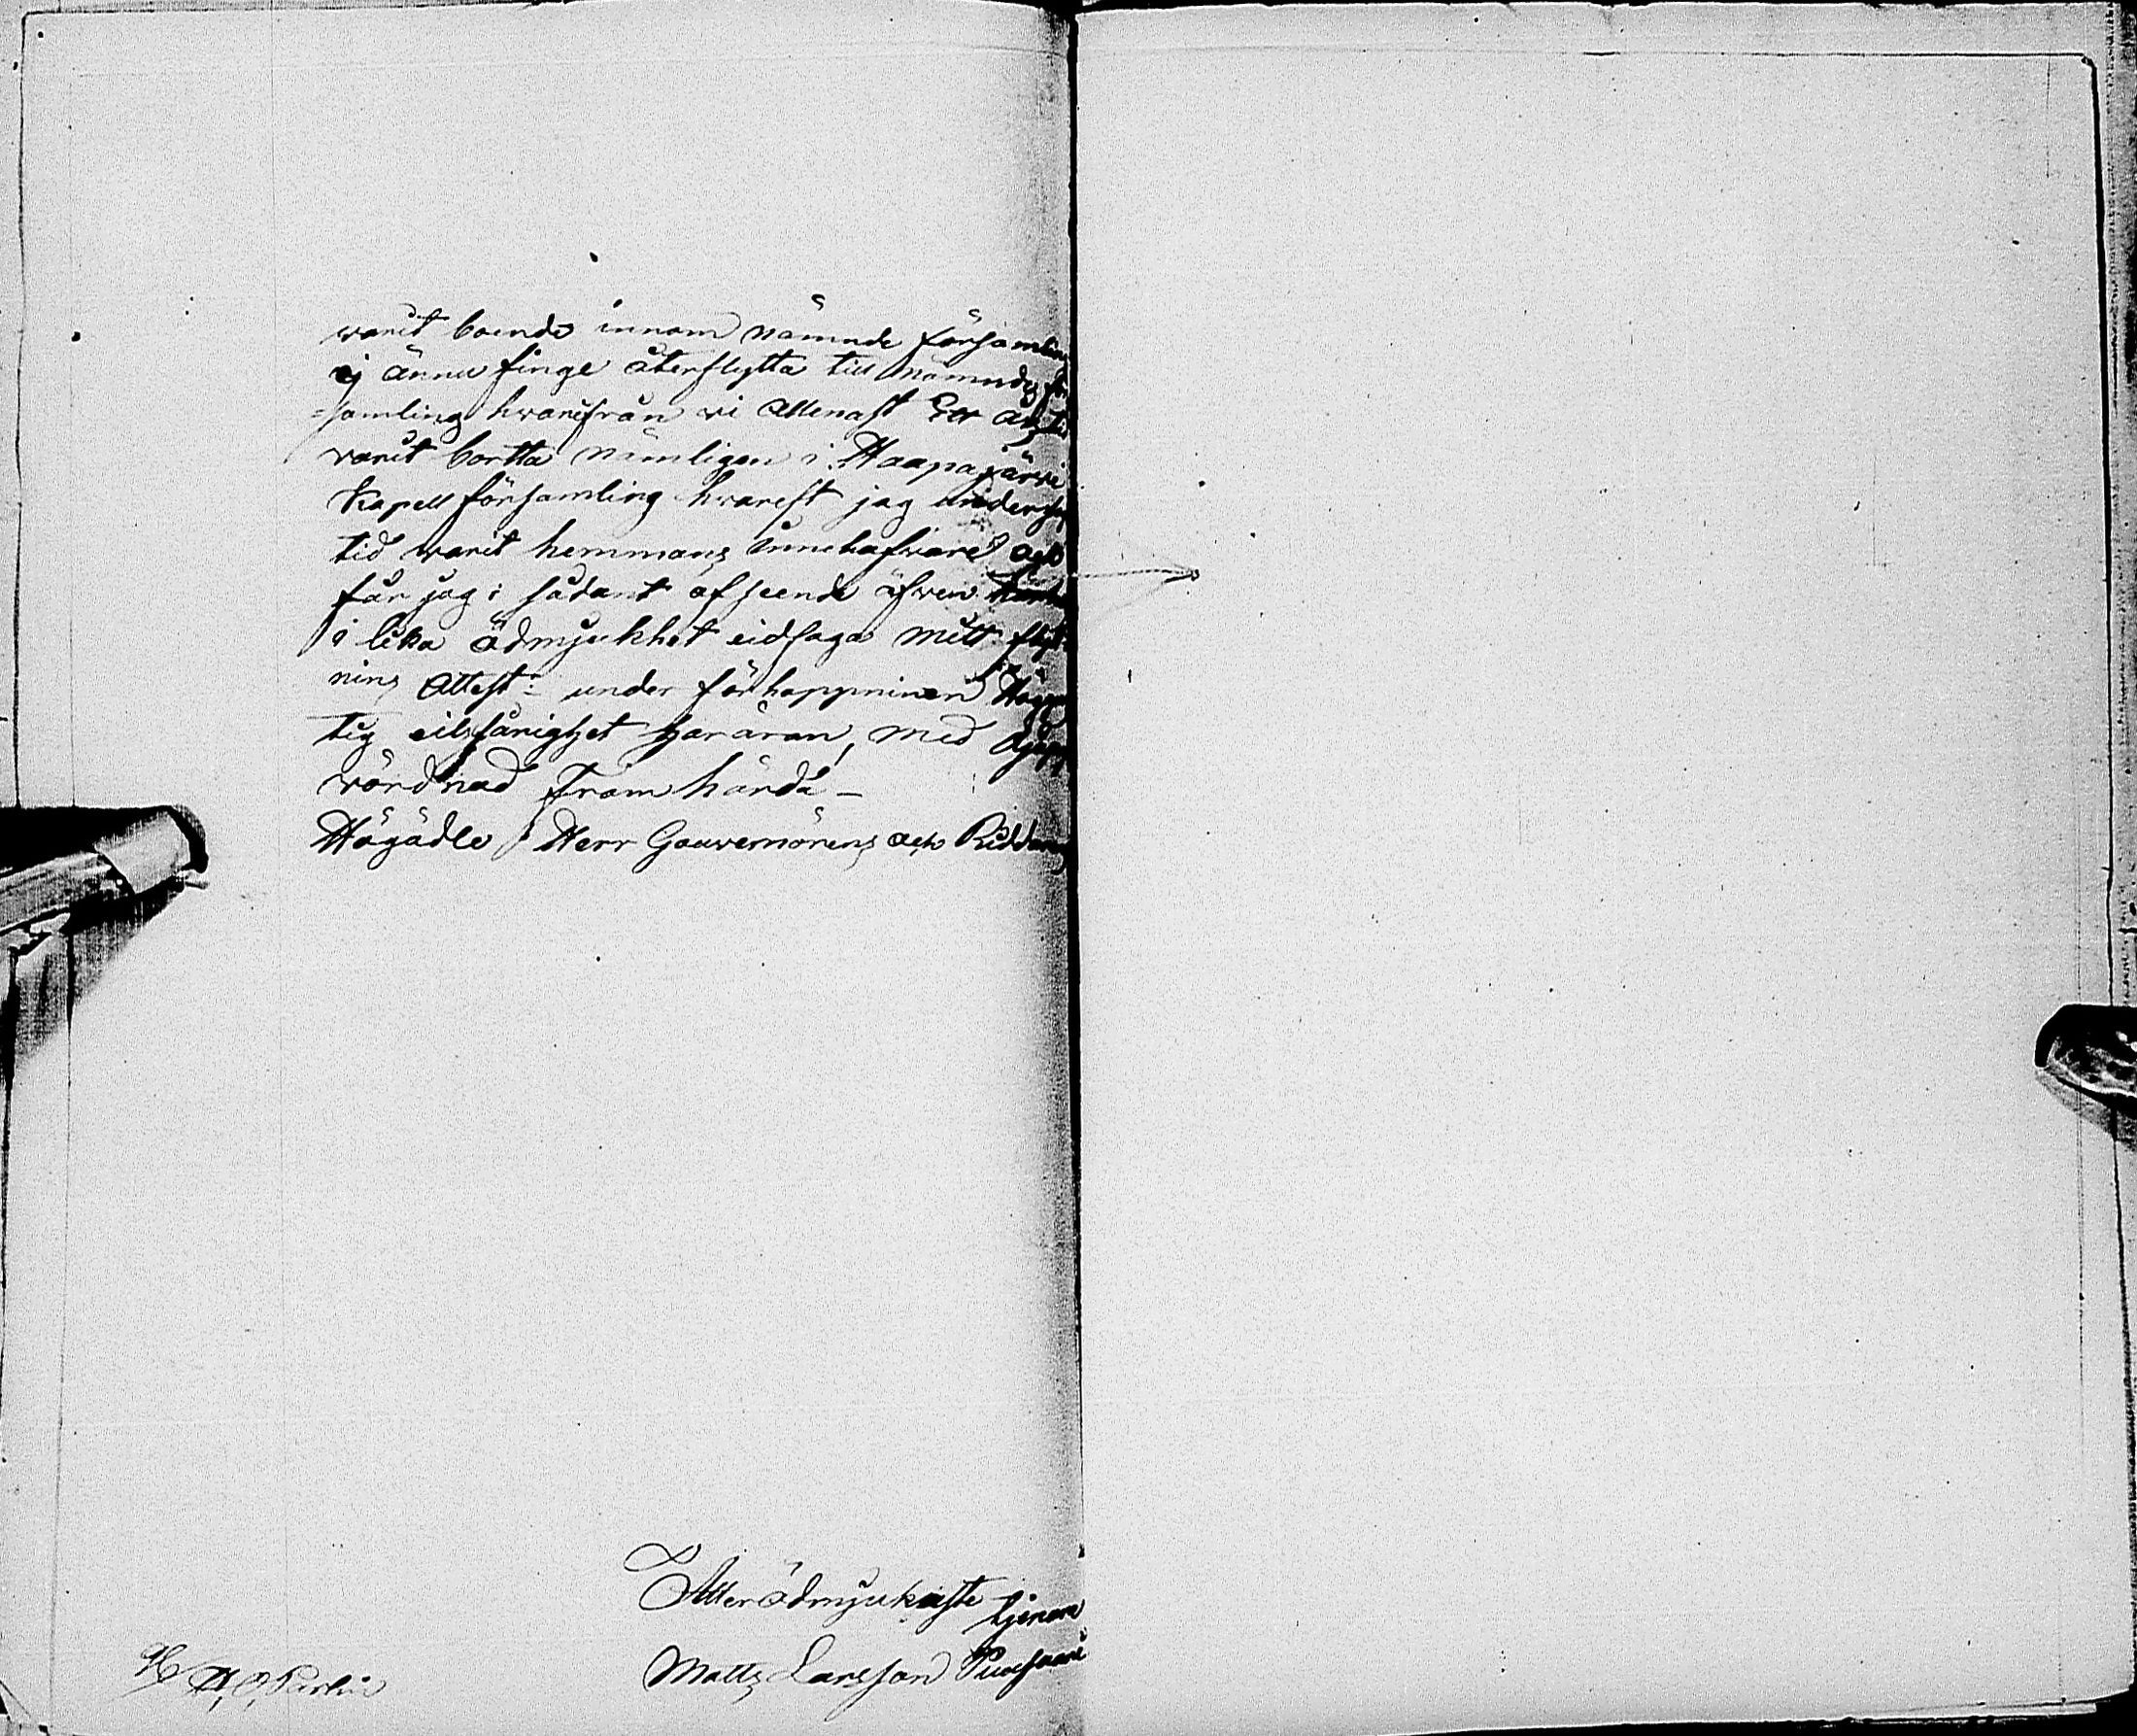 warit boende innom nämnde församling
ej ännu finge återflytta till nämnde för
=samling hvarifrån vi allenast Ett års tid
varit bortta nämligen i Haapajärvi
Kapell församling hvarest jag under
tid warit hemmans innehafvare och
får jag i sådant afseende äfven
i lika ödmjukhet eidfaga mitt flyt=
nings Attest: under förhoppninen
tig eilsfärighet har äran, med djup
wördnad framhärda –
Högädle Herr Gouvernörens och Riddarens
Allerödmjukaste
tjenare
Matts Larsson